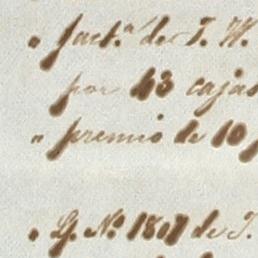 " fact.ª de T. W.
por 43 cajas
" premio de 10
" G. Nº 1807 de T.